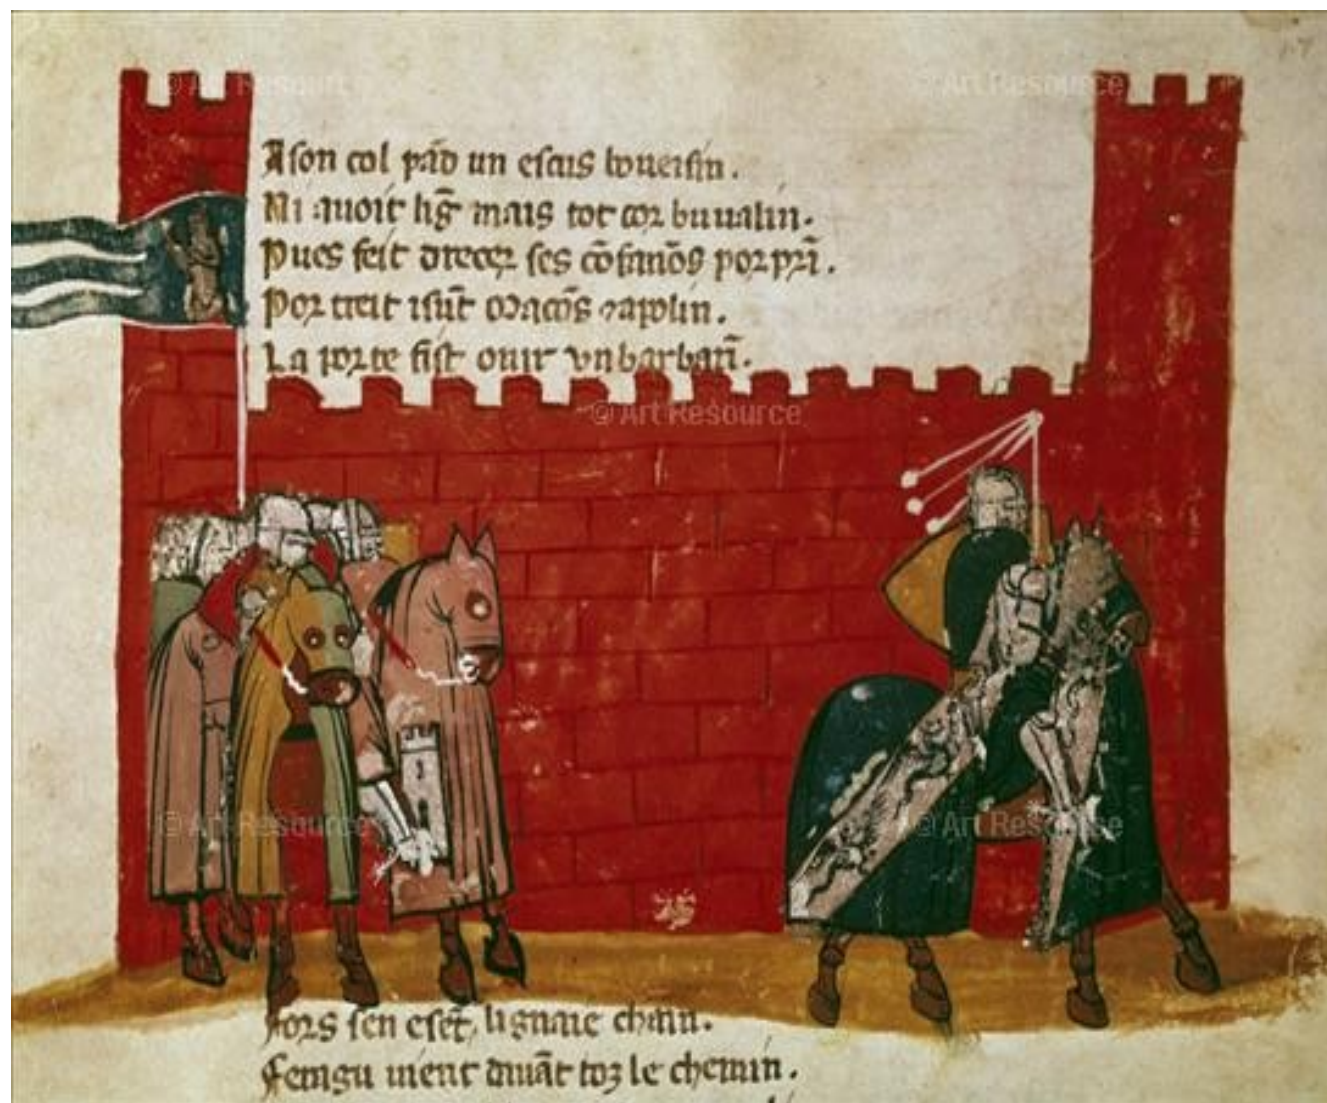 © Art Resource
© Art Resource
A son col pād un escus
Ni auoit liḡ mais tot cor buualin.
Pues feit drecer ses cōfanōs por prī.
Por treit isūt
La porte fist ourir vn barbarī.
© Art Resource
© Art Resource
© Art Resource
Fors sen eset, lignaie chain.
Fengu uient duāt toz le chemin.